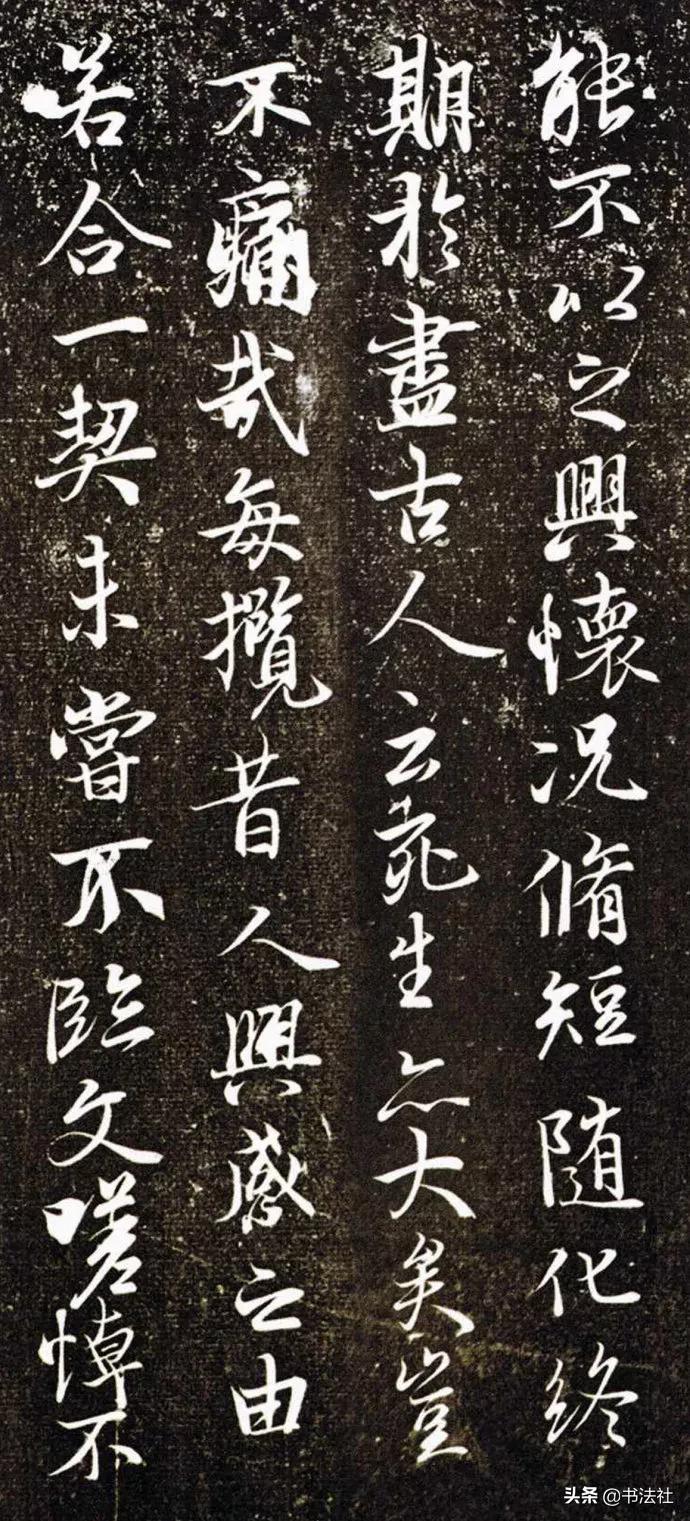 能不以之興懷况脩短随化終
期於盡古人云死生亦大矣豈
不痛哉每攬昔人興感之由
若合一契未嘗不臨文嗟悼不
头条 @书法社